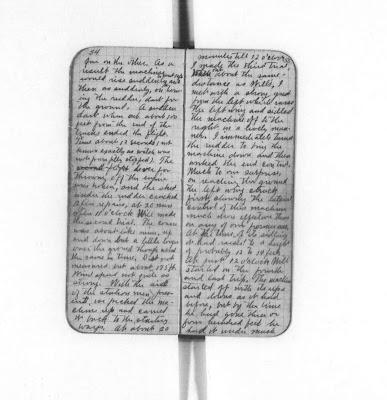 54
gun on the other. As a
result the machine would
would rise suddenly
then as suddenly, on turn-
ing the rudder, dart for
the ground. A sudden
dart when out about 100
feet from the end of the
tracks ended the flight.
Time about 12 seconds (not
known exactly as watch was
not promptly stopped). The
lever for
throwing off the engine
was broken, and the skid
under the rudder cracked.
After repairs, at 20 min.
after 11 o'clock Will made
the second trial. The course
was about like mine, up
and down but a little longer
over the ground though about
the same in time. Dist. not
measured but about 175 ft.
Wind speed not quite so
strong. With the aid
of the station men pre-
sent, we picked the ma-
chine up and carried
it back to the starting
ways. At about 20
minutes till 12 o'clock
I made the third trial.
When out about the same
distance as Will's, I
met with a strong gust
from the left which raised
the left wing and sidled
the machine off to the
right in a lively man-
ner. I immediately turned
the rudder to bring the
machine down and then
worked the end control.
Much to our surprise,
on reaching the ground
the left wing struck
first, showing the lateral
control of this machine
much more effective than
on any of our former ones.
At the time of its sidling
it had raised to a height
of probably 12 to 14 feet.
At just 12 o'clock Will
started on the fourth
and last trip. The machine
started off with its ups
and downs as it had
before, but by the time
he had gone three or
four hundred feet he
had it under much